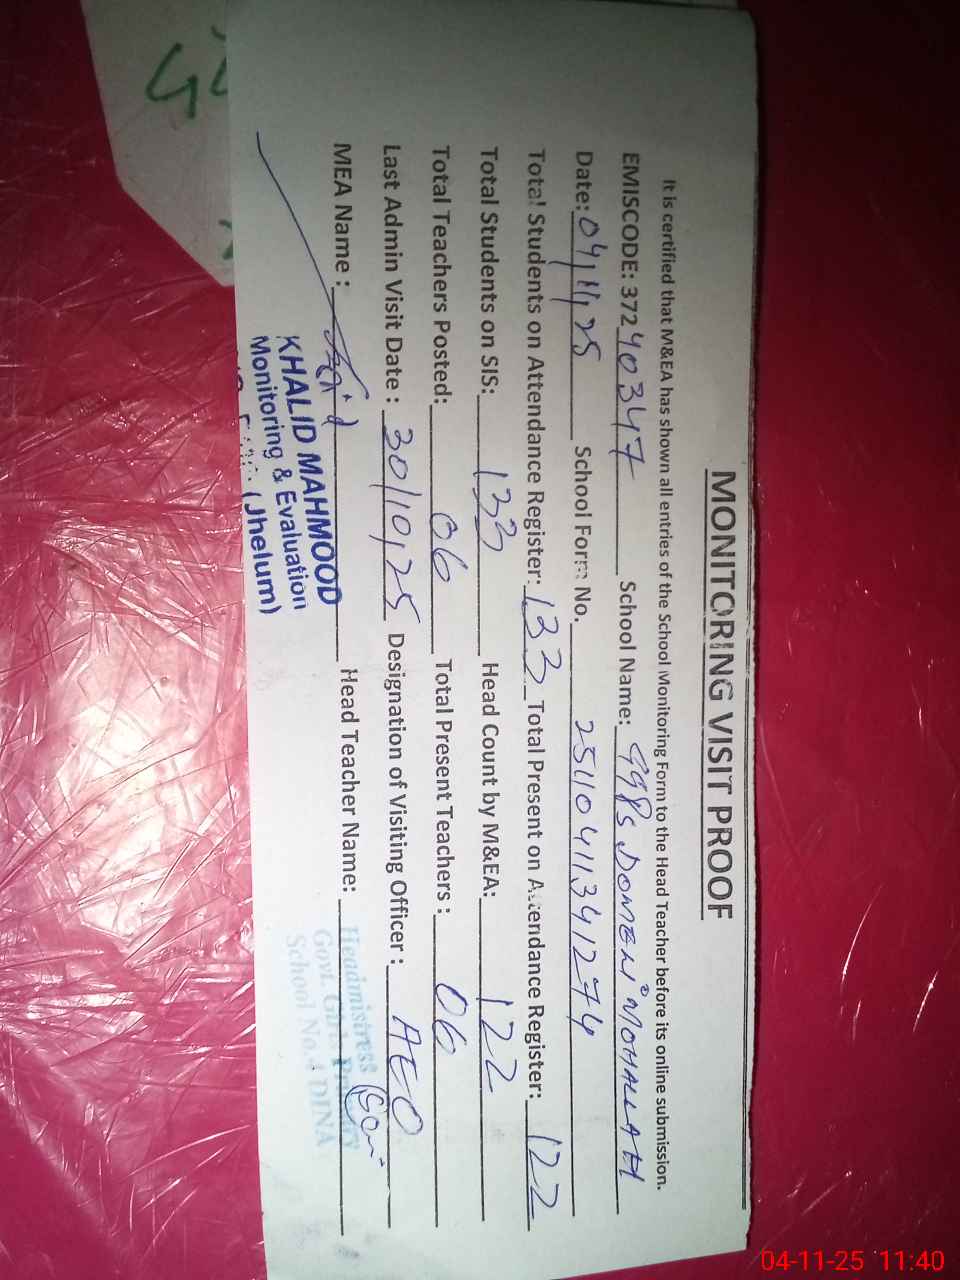 MONITORING VISIT PROOF
It is certified that M&EA has shown all entries of the School Monitoring Form to the Head Teacher before its online submission.
EMISCODE: 37240347 School Name: GGPS DOMELI MOHALLAH
Date: 04/11/25 School Form No. 25110411341274
Total Students on Attendance Register: 133 Total Present on Attendance Register: 122
Total Students on SIS: 133 Head Count by M&EA: 122
Total Teachers Posted: 06 Total Present Teachers : 06
Last Admin Visit Date : 30/10/25 Designation of Visiting Officer : AEO
MEA Name : Head Teacher Name:
KHALID MAHMOOD
Monitoring & Evaluation
(Jhelum)
Headmistress
Govt. Girls Primary
School No.4 DINA
04-11-25 11:40